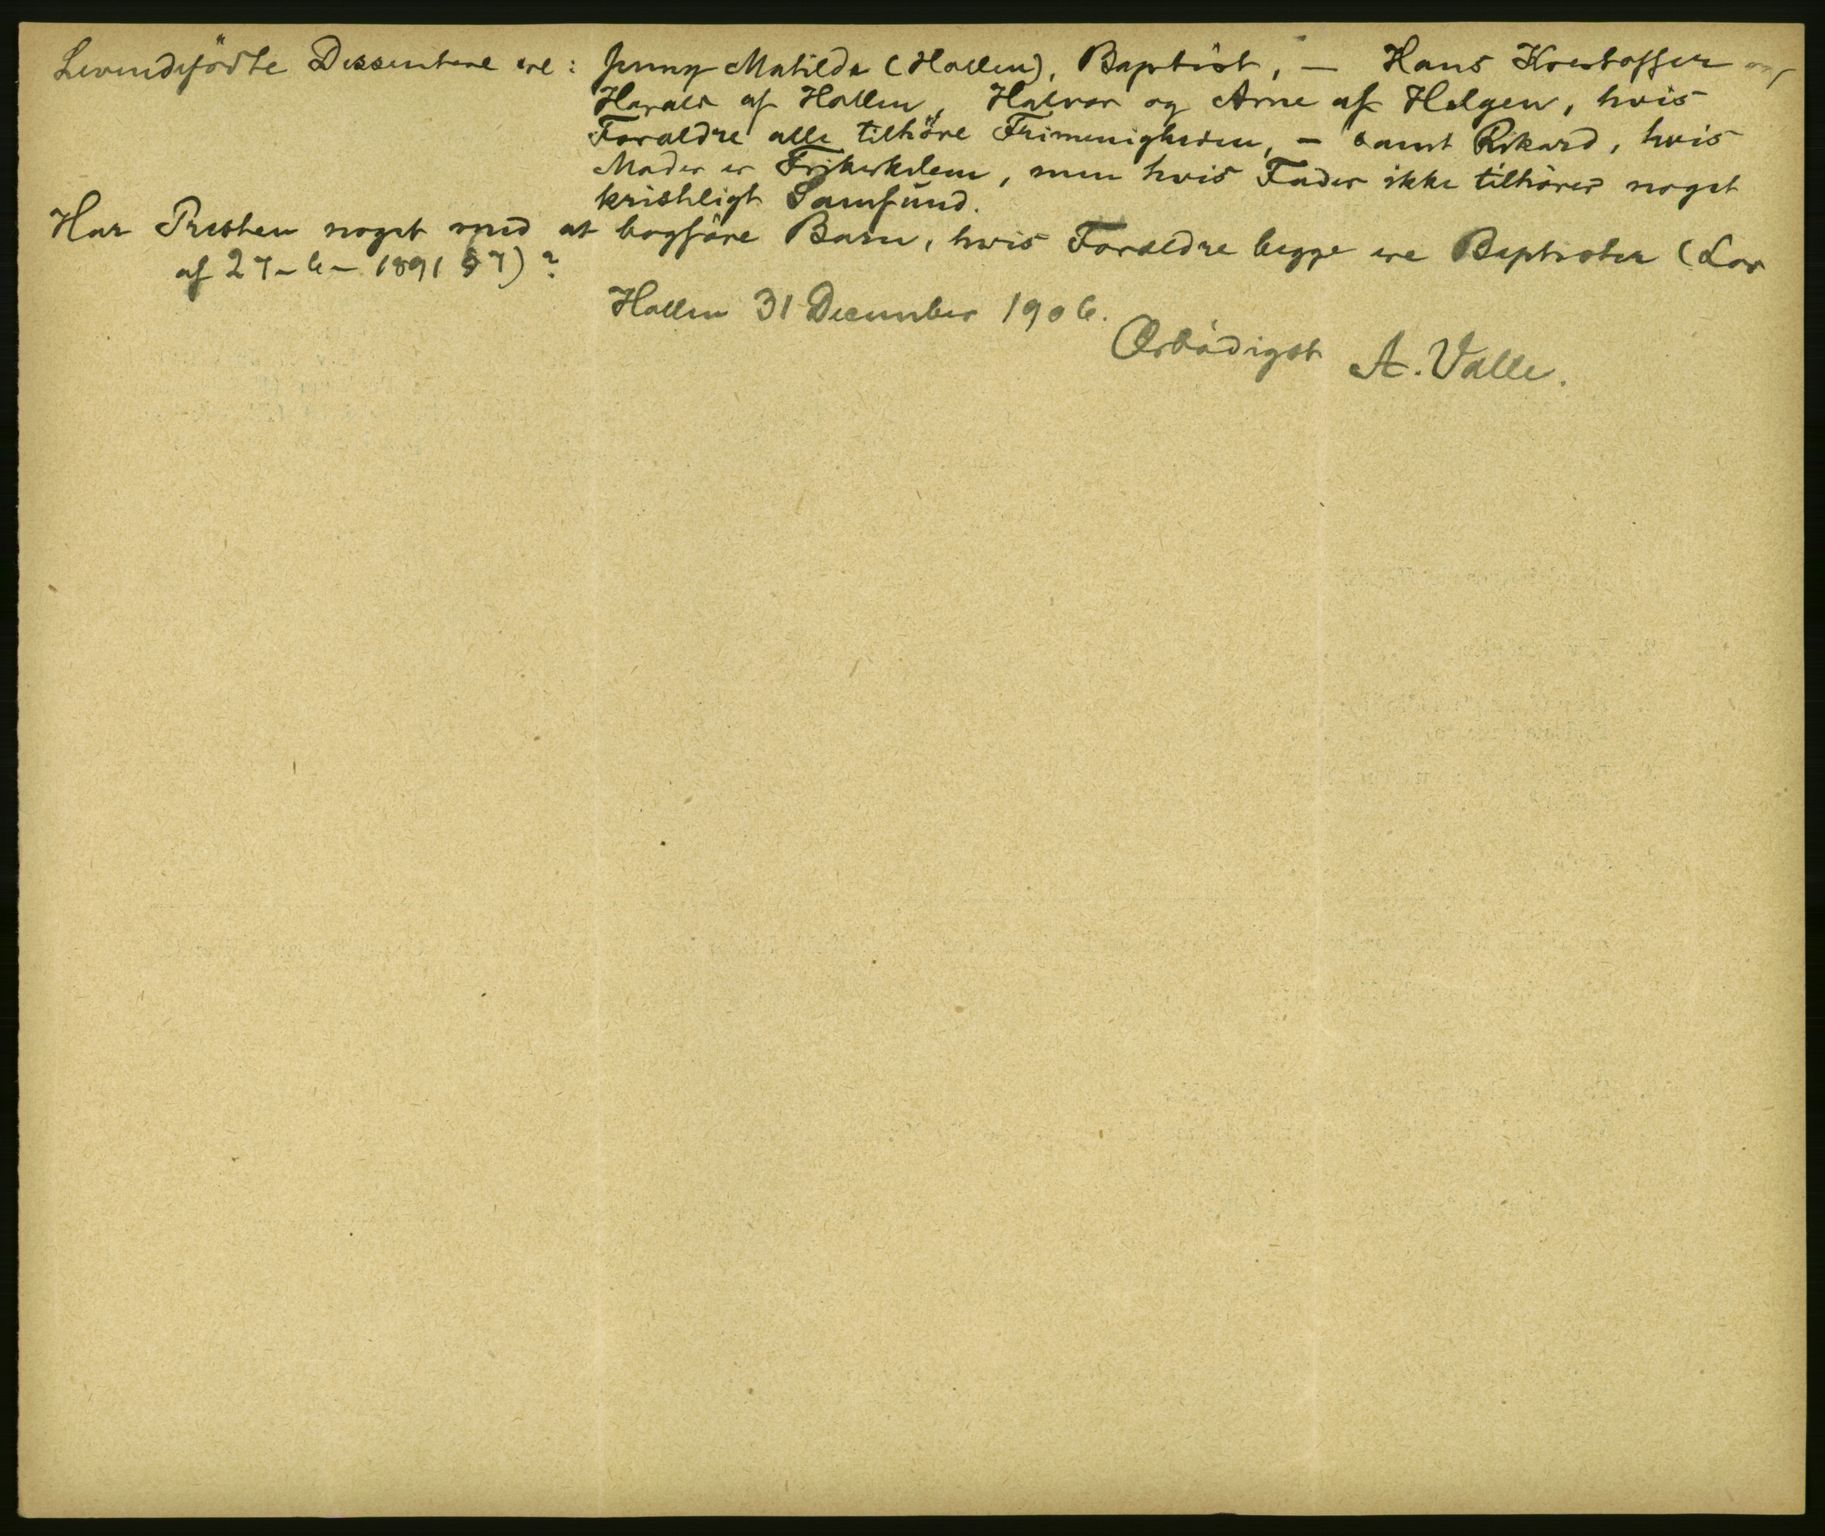 Levendefödte Dissentere ere: Jenny Matilde (Hollen), Baptist, — Hans Kristoffer og
Harald af Hollen, Halvor og Arne af Helgen, hvis
Foraldre alle tilhöre Frimenigheden, — samt Rikard, hvis
Moder er Frikirkelem, men hvis Fader ikke tilhörer noget
kristeligt Samfund.
Har Presten noget med at bogföre Barn, hvis Foraldre begge ere Baptister (Lov
af 27-6-1891 § 7)?
Hollen 31 December 1906.
Ærbödigst A. Valle.